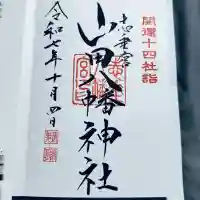 開運十四社詣
志業宮
山田八幡神社
令和七年十月四日